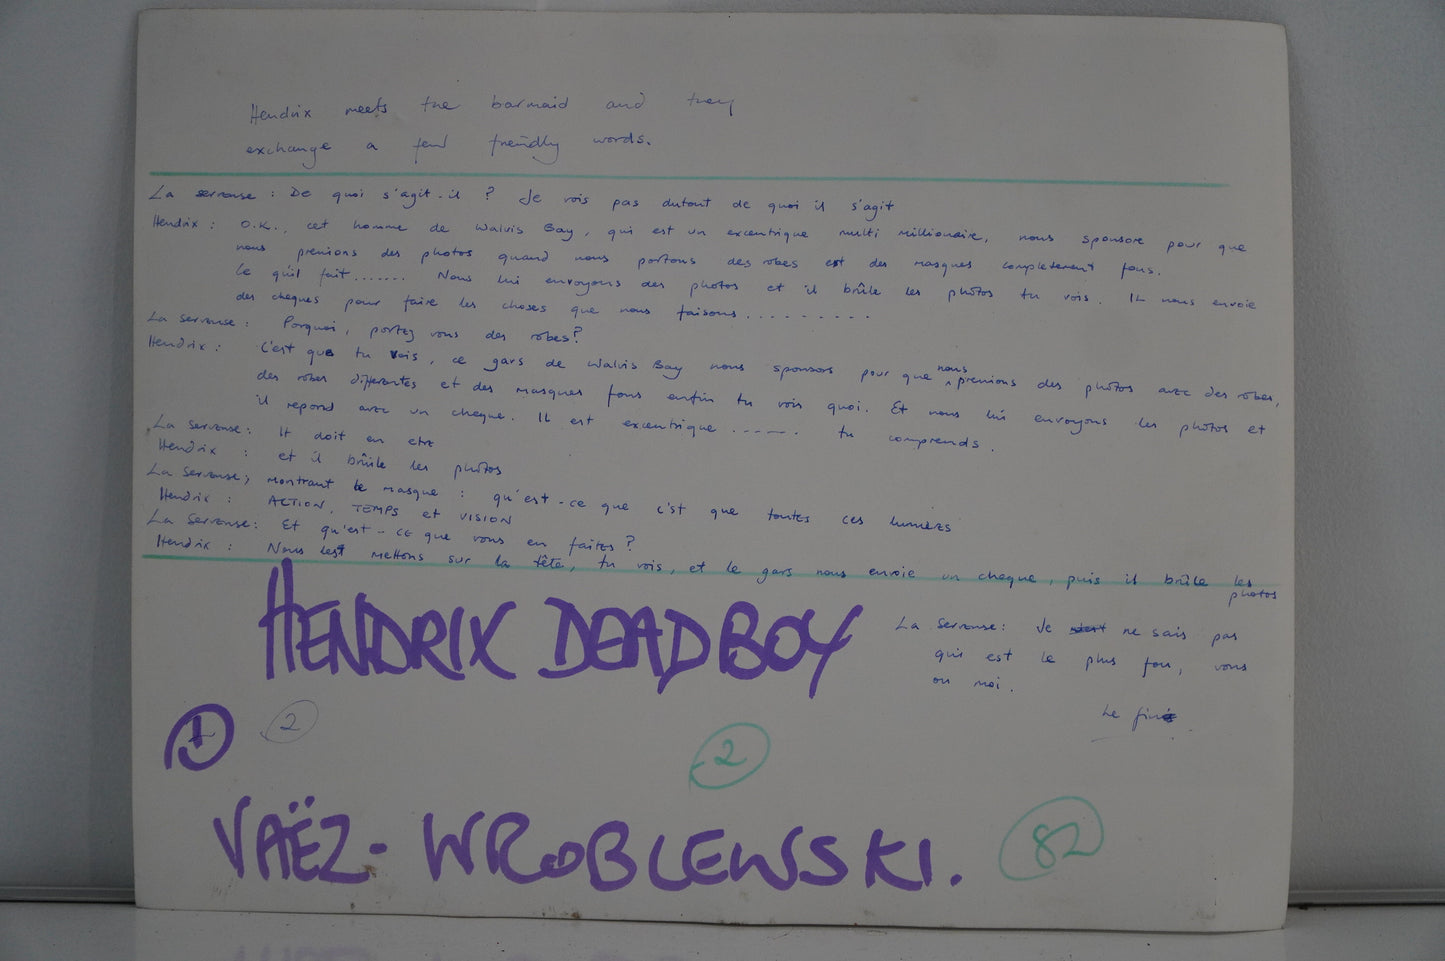 Hendrix meets the barmaid and they
exchange a few friendly words.
La serveuse : De quoi s'agit-il ? Je vois pas dutout de quoi il s'agit
Hendrix : O.K., cet homme de Walvis Bay, qui est un excentrique multi millionaire, nous sponsore pour que
nous prenions des photos quand nous portons des robes et des masques complètement fous.
Ce qu'il fait....... Nous lui envoyons des photos et il brûle les photos tu vois. IL nous envoie
des cheques pour faire les choses que nous faisons..........
La Serveuse : Porquoi, portez vous des robes?
Hendrix : C'est que tu vois, ce gars de Walvis Bay nous sponsors pour que nous prenions des photos avec des robes,
des robes differentes et des masques fous enfin tu vois quoi. Et nous lui envoyons les photos et
il repond avec un cheque. Il est excentrique ...... tu comprends.
La Serveuse : It doit en etre
Hendrix : et il brûile les photos
La Serveuse, montrant le masque : qu'est-ce que c'ist que toutes ces lumières
Hendrix : ACTION, TEMPS et VISION
La Serveuse : Et qu'est-ce que vous en faites ?
Hendrix : Nous les mettons sur la tête, tu vois, et le gars nous envoie un cheque, puis il brûle les
photos
La Serveuse : Je ne sais pas
qui est le plus fou, vous
ou moi.
Le fin
HENDRIX DEADBOY
1
2
2
VAËZ-WROBLEWSKI.
82